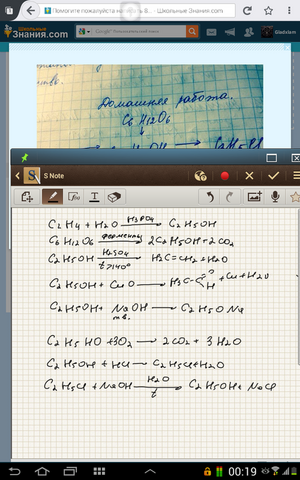 Помогите пожалуйста написать 8... - Школьные Знания.com
Школьные
Знания.com
Google™ Пользовательский поиск
Gladxlam
Домашняя работа.
C6H12O6
S Note
C2H4 + H2O —H3PO4→ C2H5OH
C6H12O6 —ферменты→ 2C2H5OH+2CO2
C2H5OH —H2SO4 t>140°→ H2C=CH2+H2O
C2H5OH + CuO → H3C-C O H + Cu+H2O
C2H5OH+ NaOH тв. → C2H5ONa
C2H5HO+3O2 → 2CO2+3H2O
C2H5OH + HCl → C2H5Cl+H2O
C2H5Cl + NaOH —H2O t→ C2H5OH+ NaCl
00:19